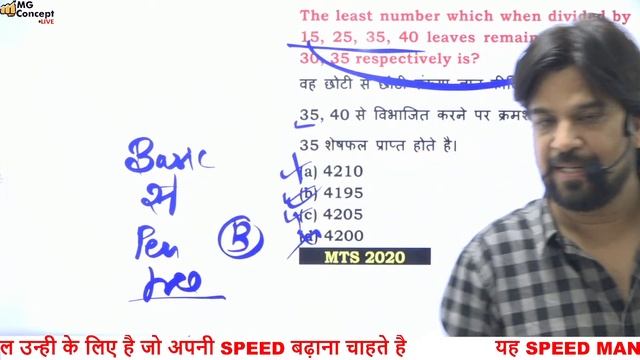 MG
Concept
LIVE
The least number which when divided by
15, 25, 35, 40 leaves remain
30, 35 respectively is?
वह छोटी से छोटी
35, 40 से विभाजित करने पर क्रमश
35 शेषफल प्राप्त होते है।
(a) 4210
(b) 4195
(c) 4205
(d) 4200
MTS 2020
Basic
से
Pen
free
B
ल उन्ही के लिए है जो अपनी SPEED बढ़ाना चाहते है यह SPEED MAN